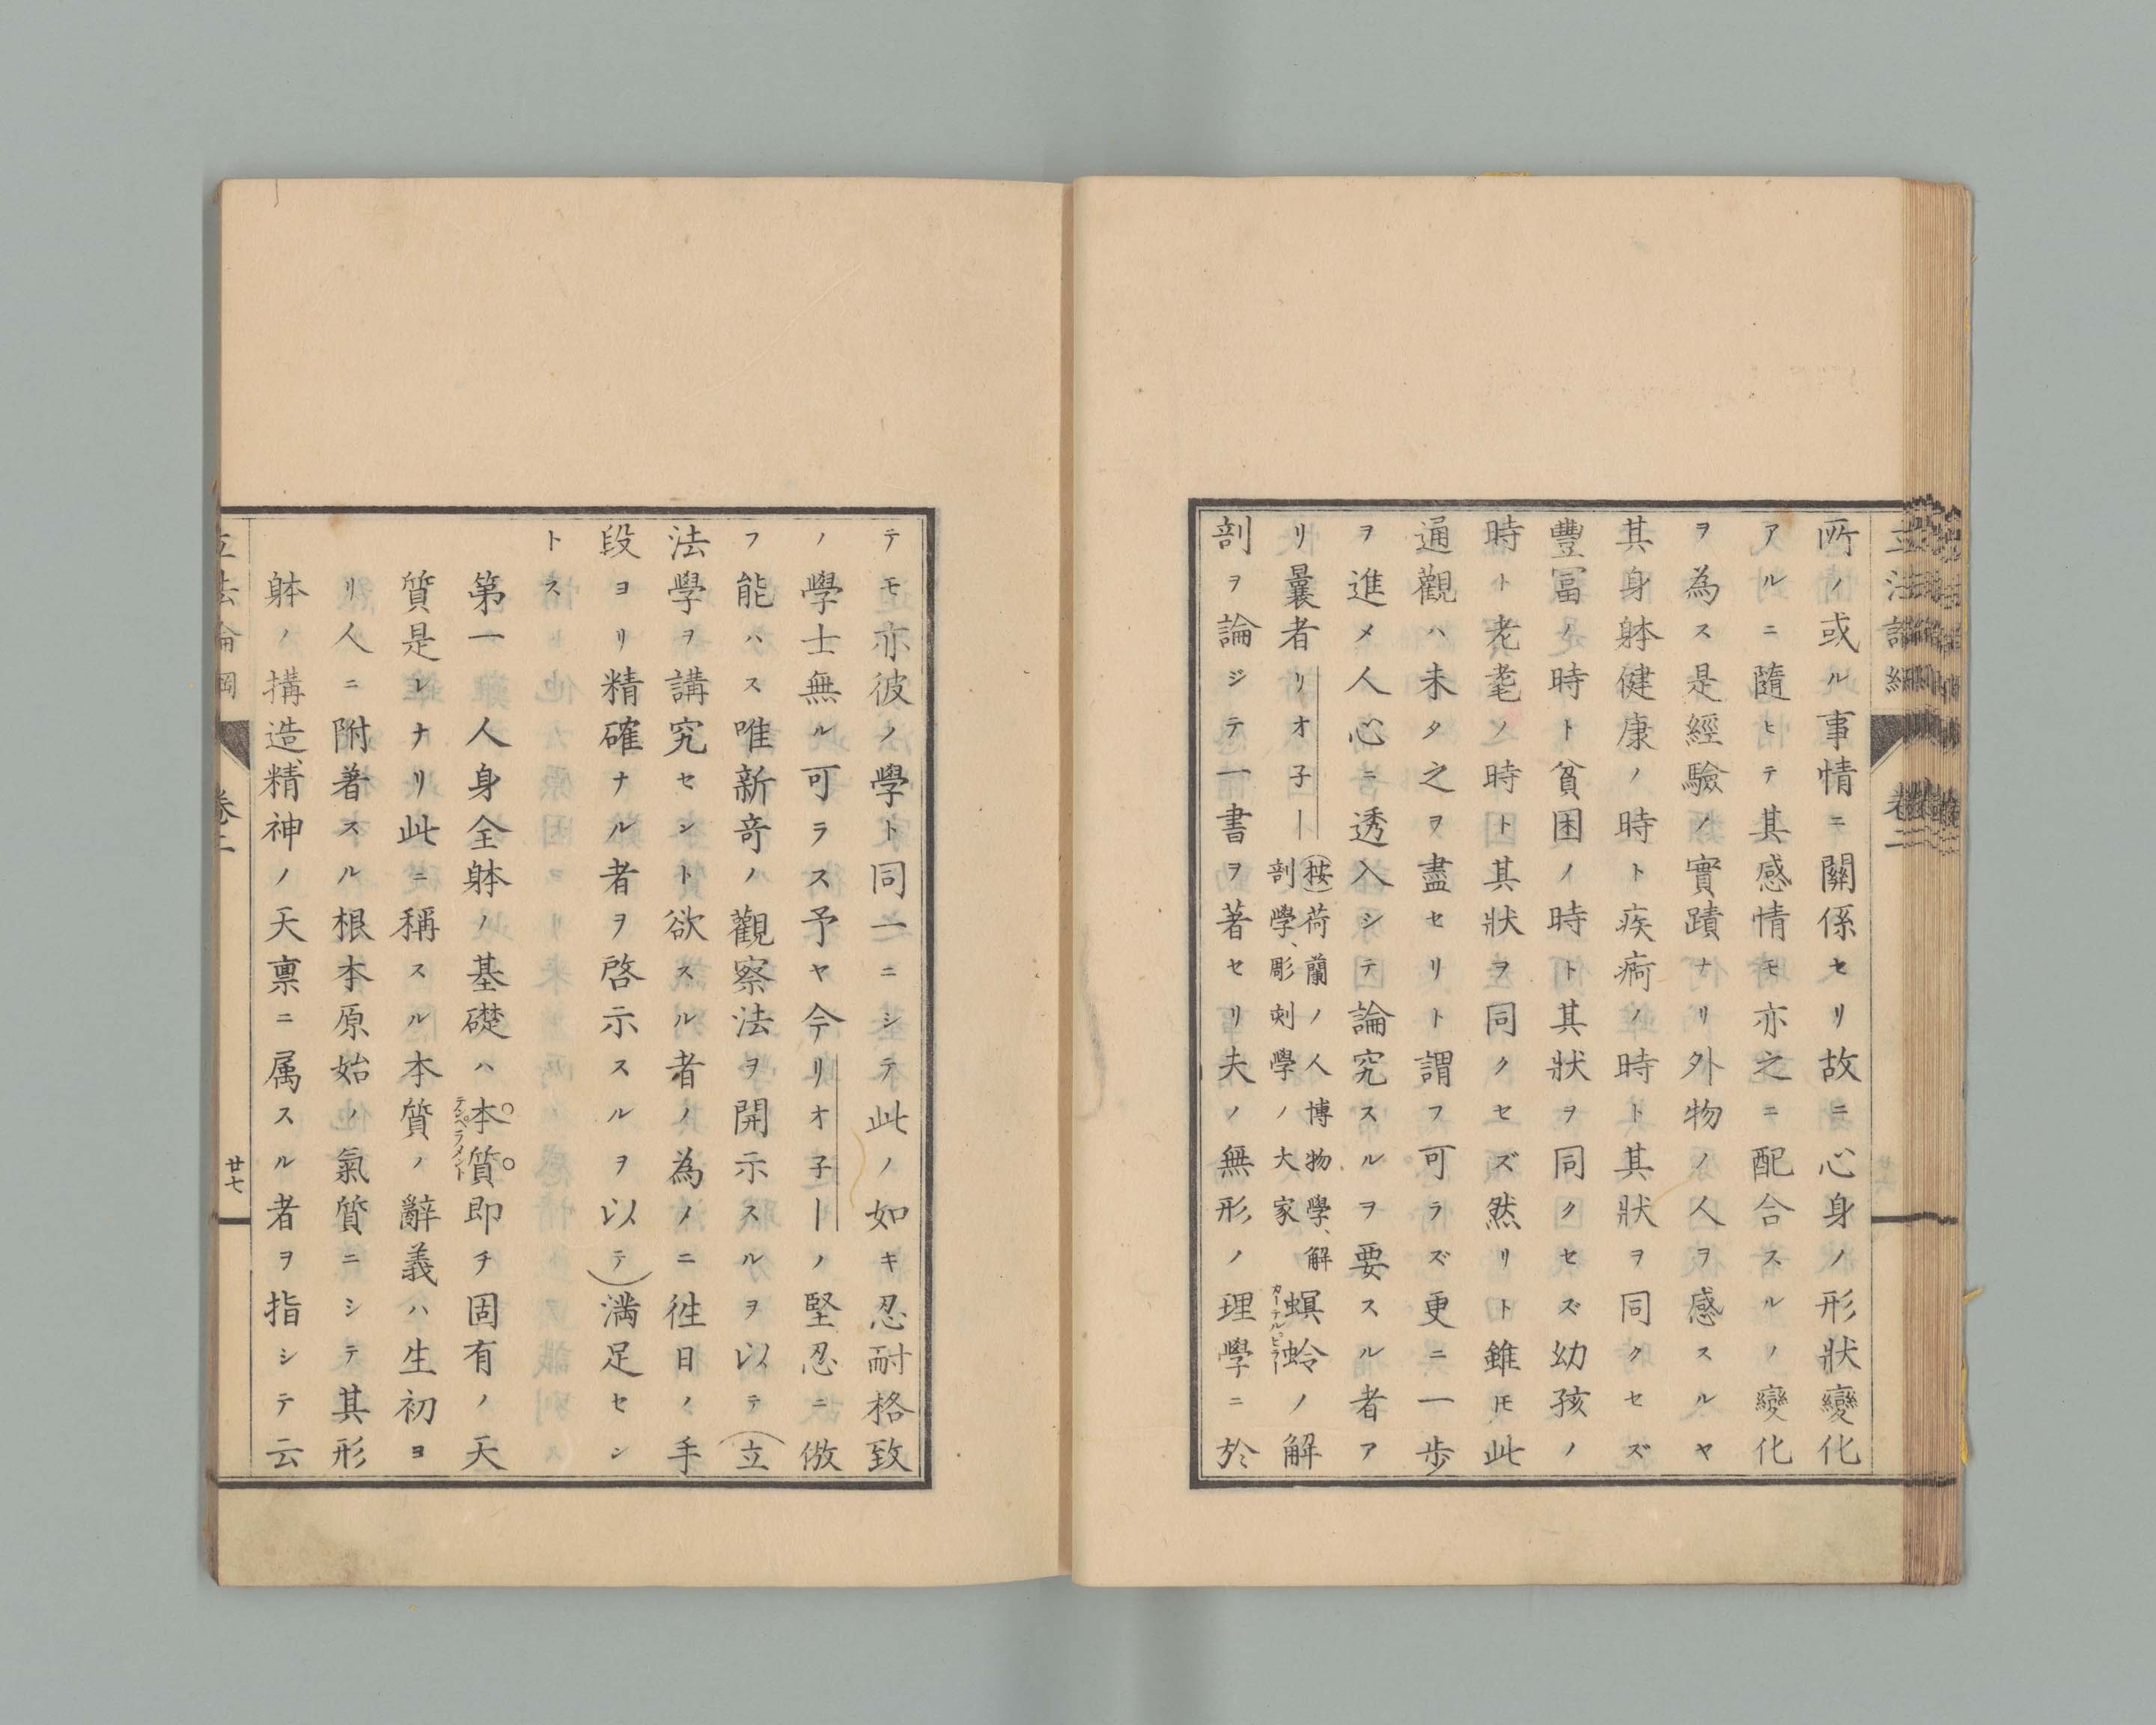 立法論綱 卷二
所ノ或ル事情ニ關係セリ故ニ心身ノ形狀變化
アルニ隨ヒテ其感情モ亦之ニ配合スルノ變化
ヲ為ス是經驗ノ實蹟ナリ外物ノ人ヲ感スルヤ
其身躰健康ノ時ト疾痾ノ時ト其狀ヲ同クセズ
豐冨ノ時ト貧困ノ時ト其狀ヲ同クセズ幼孩ノ
時ト老耄ノ時ト其狀ヲ同クセズ然リト雖𪜈此
通觀ハ未タ之ヲ盡セリト謂フ可ラズ更ニ一歩
ヲ進メ人心ニ透入シテ論究スルヲ要スル者ア
リ曩者リオ子ー(按)荷蘭ノ人博物學、解剖學、彫刻學ノ大家螟蛉カーテルピラーノ解
剖ヲ論ジテ一書ヲ著セリ夫ノ無形ノ理學ニ於
テモ亦彼ノ學ト同一ニシテ此ノ如キ忍耐格致
ノ學士無ル可ラス予ヤ今リオ子ーノ堅忍ニ倣
フ能ハス唯新竒ノ觀察法ヲ開示スルヲ以テ(立
法學ヲ講究セント欲スル者ノ為ノニ徃日ノ手
段ヨリ精確ナル者ヲ啓示スルヲ以テ)満足セン
トス
第一 人身全躰ノ基礎ハ本質テンペラメント即チ固有ノ天
質是レナリ此ニ稱スル本質ノ辭義ハ生初ヨ
リ人ニ附着スル根本原始ノ氣質ニシテ其形
躰ノ搆造、精神ノ天禀ニ属スル者ヲ指シテ云
立法論綱 卷二 廿七